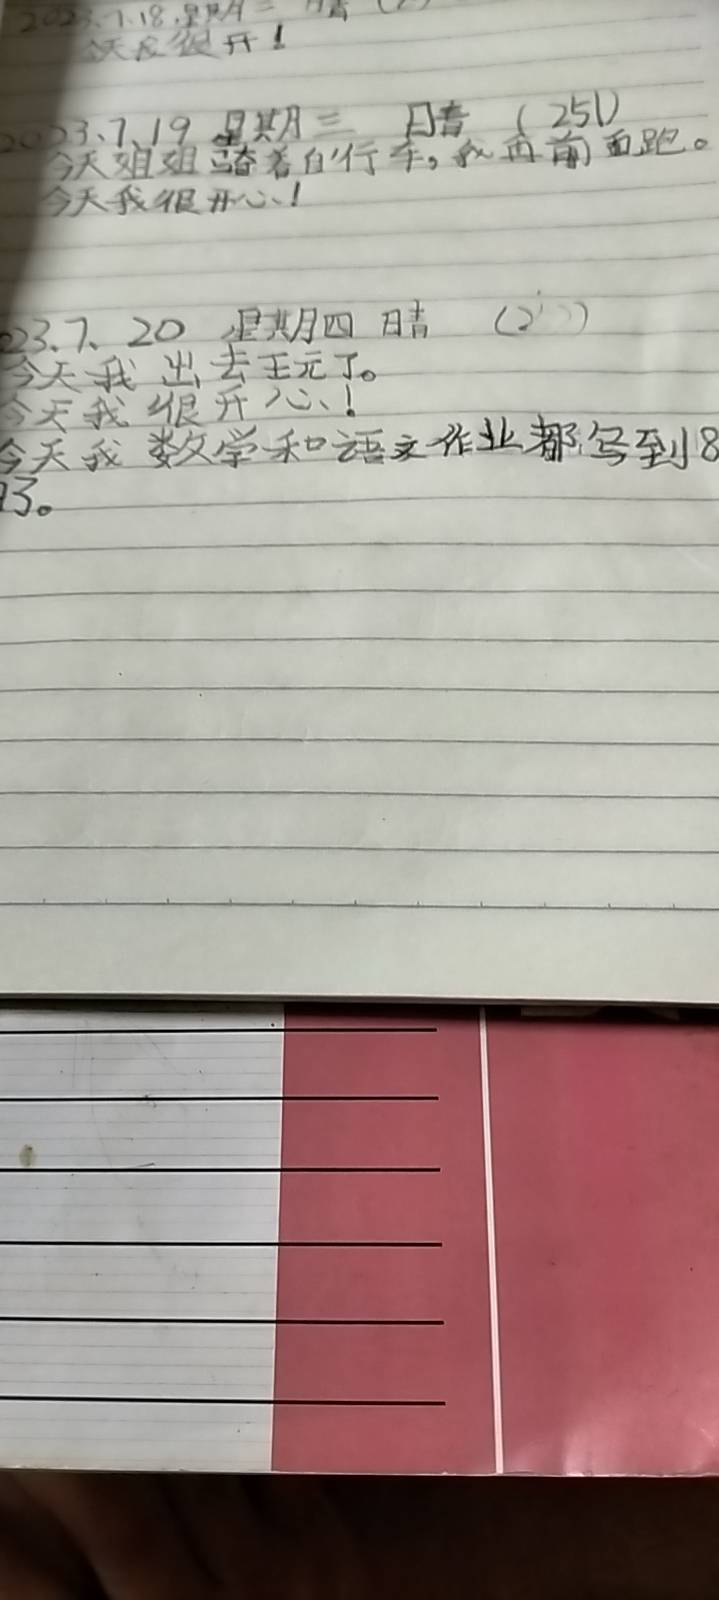 2023.7.18.星期二 晴
今天我很开!
2023.7.19 星期三 晴 (251)
今天姐姐骑着自行车,我再前面跑。
今天我很开心!
23.7.20 星期四 晴
今天我出去王元了。
今天我很开心!
今天我数学和语文作业都写到8
了。